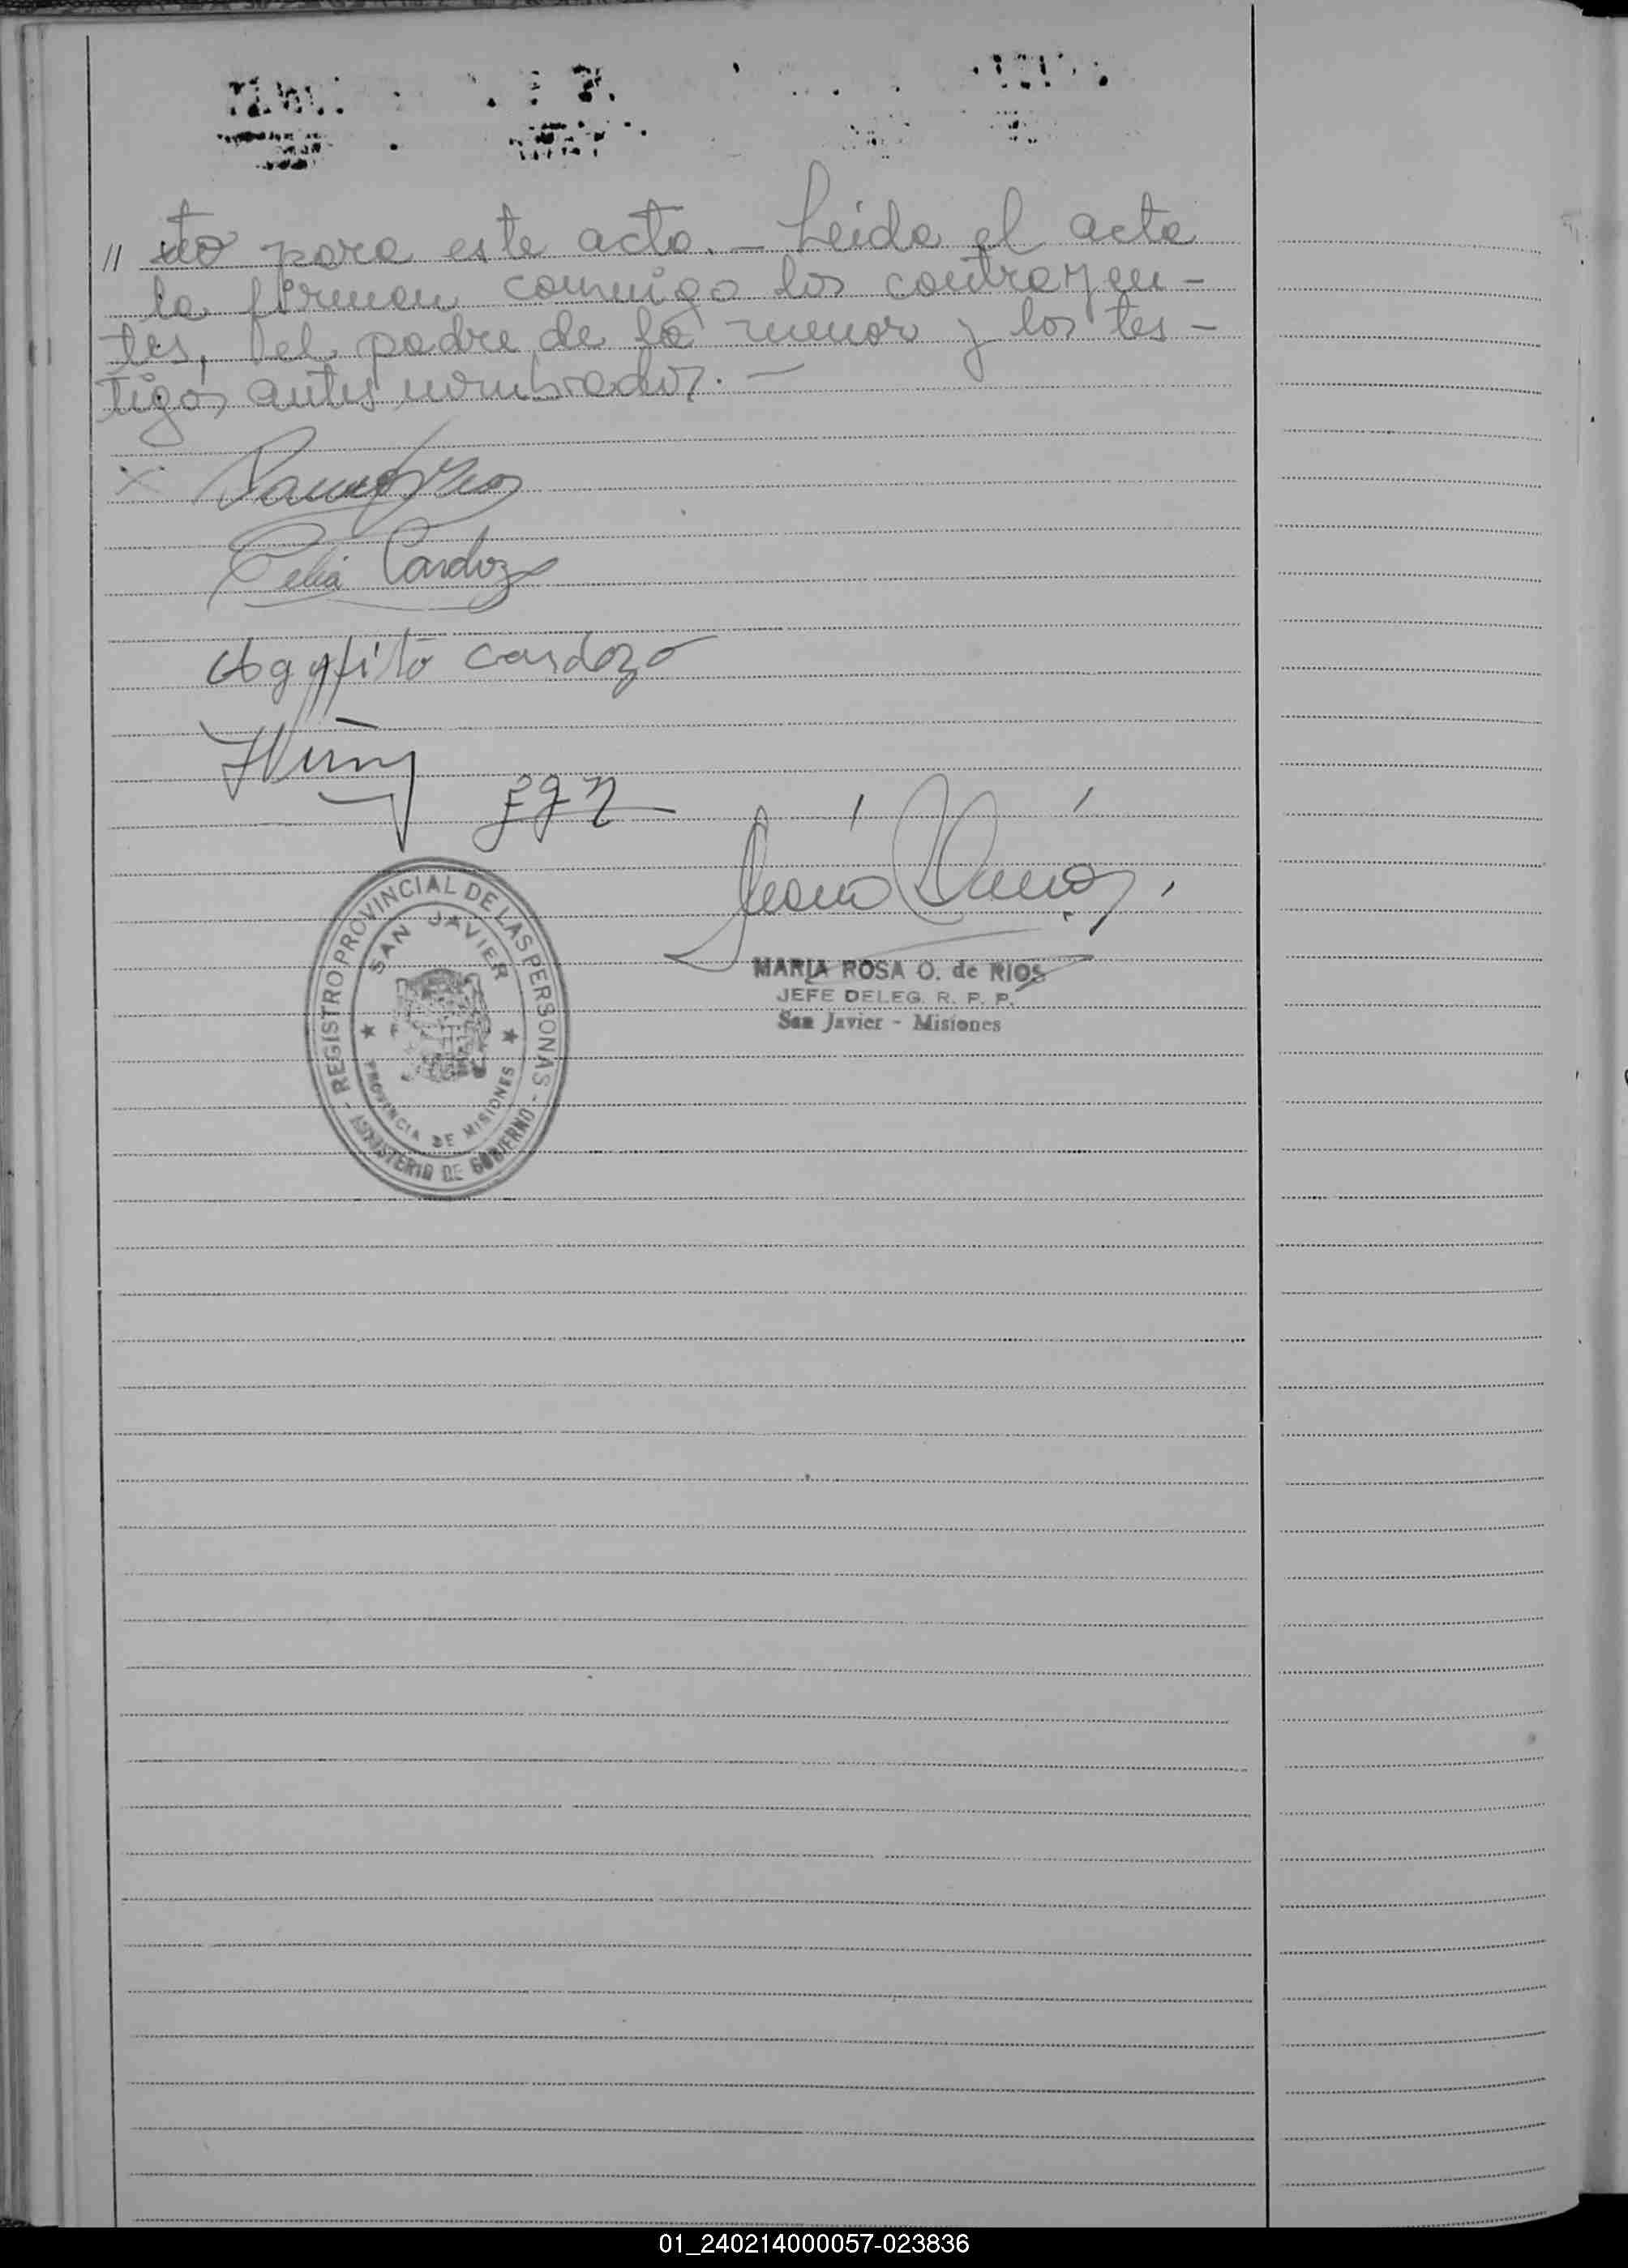 // to para este acto. - Leida el acta
la firman conmigo los contrayen-
tes, el padre de la menor y los tes-
tigos antes nombrados. -
X
Celia Cardozo
Agapito Cardozo
MARIA ROSA O. de RIOS
JEFE DELEG. R. P. P.
San Javier - Misiones
- REGISTRO PROVINCIAL DE LAS PERSONAS -
SAN JAVIER
PROVINCIA DE MISIONES
MINISTERIO DE GOBIERNO
01_240214000057-023836